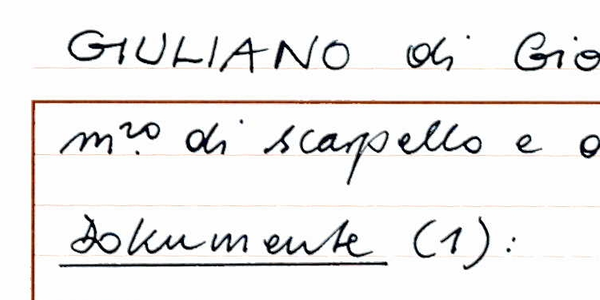 GIULIANO di Gio
m.ro di scarpello e
Dokumente (1):